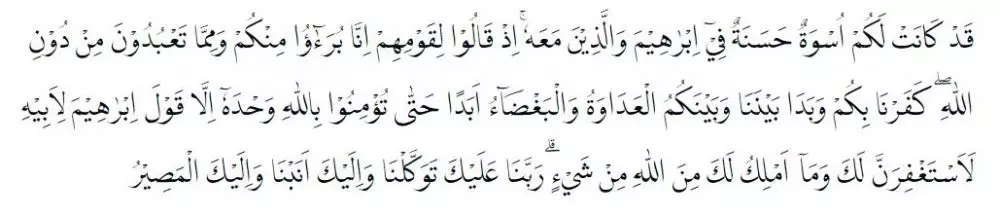 قَدْ كَانَتْ لَكُمْ اُسْوَةٌ حَسَنَةٌ فِيْٓ اِبْرٰهِيْمَ وَالَّذِيْنَ مَعَهٗۚ اِذْ قَالُوْا لِقَوْمِهِمْ اِنَّا بُرَءٰۤؤُا مِنْكُمْ وَمِمَّا تَعْبُدُوْنَ مِنْ دُوْنِ
اللّٰهِ ۖ كَفَرْنَا بِكُمْ وَبَدَا بَيْنَنَا وَبَيْنَكُمُ الْعَدَاوَةُ وَالْبَغْضَاۤءُ اَبَدًا حَتّٰى تُؤْمِنُوْا بِاللّٰهِ وَحْدَهٗٓ اِلَّا قَوْلَ اِبْرٰهِيْمَ لِاَبِيْهِ
لَاَسْتَغْفِرَنَّ لَكَ وَمَآ اَمْلِكُ لَكَ مِنَ اللّٰهِ مِنْ شَيْءٍ ۗ رَبَّنَا عَلَيْكَ تَوَكَّلْنَا وَاِلَيْكَ اَنَبْنَا وَاِلَيْكَ الْمَصِيْرُ